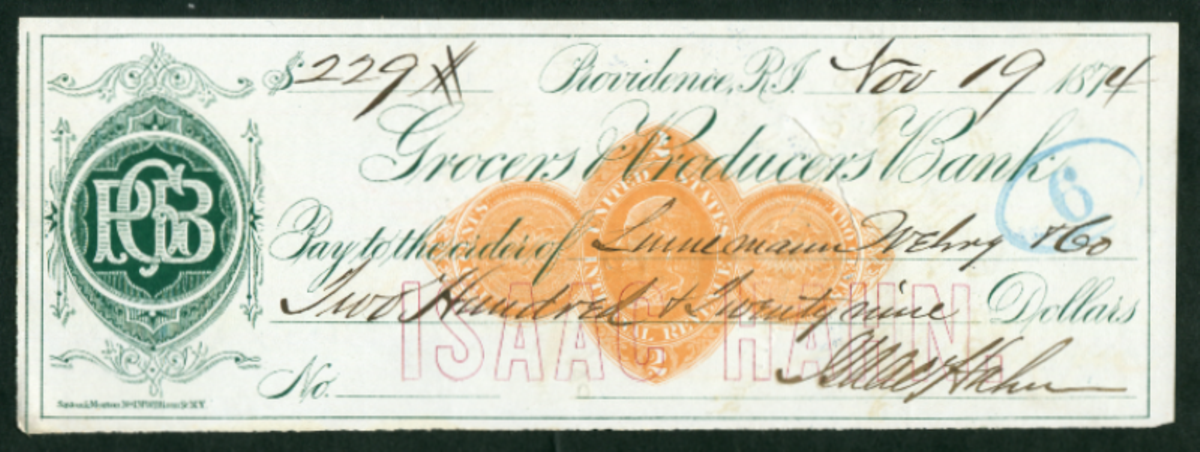 $ 229 XX Providence, R.I. Nov 19 1874
Grocers & Producers Bank
6
PGB
Pay to the order of Linnemann Wehry & Co
Two Hundred & Twenty nine Dollars
ISAAC HAHN.
Isaac Hahn
No.
2
UNITED STATES
2